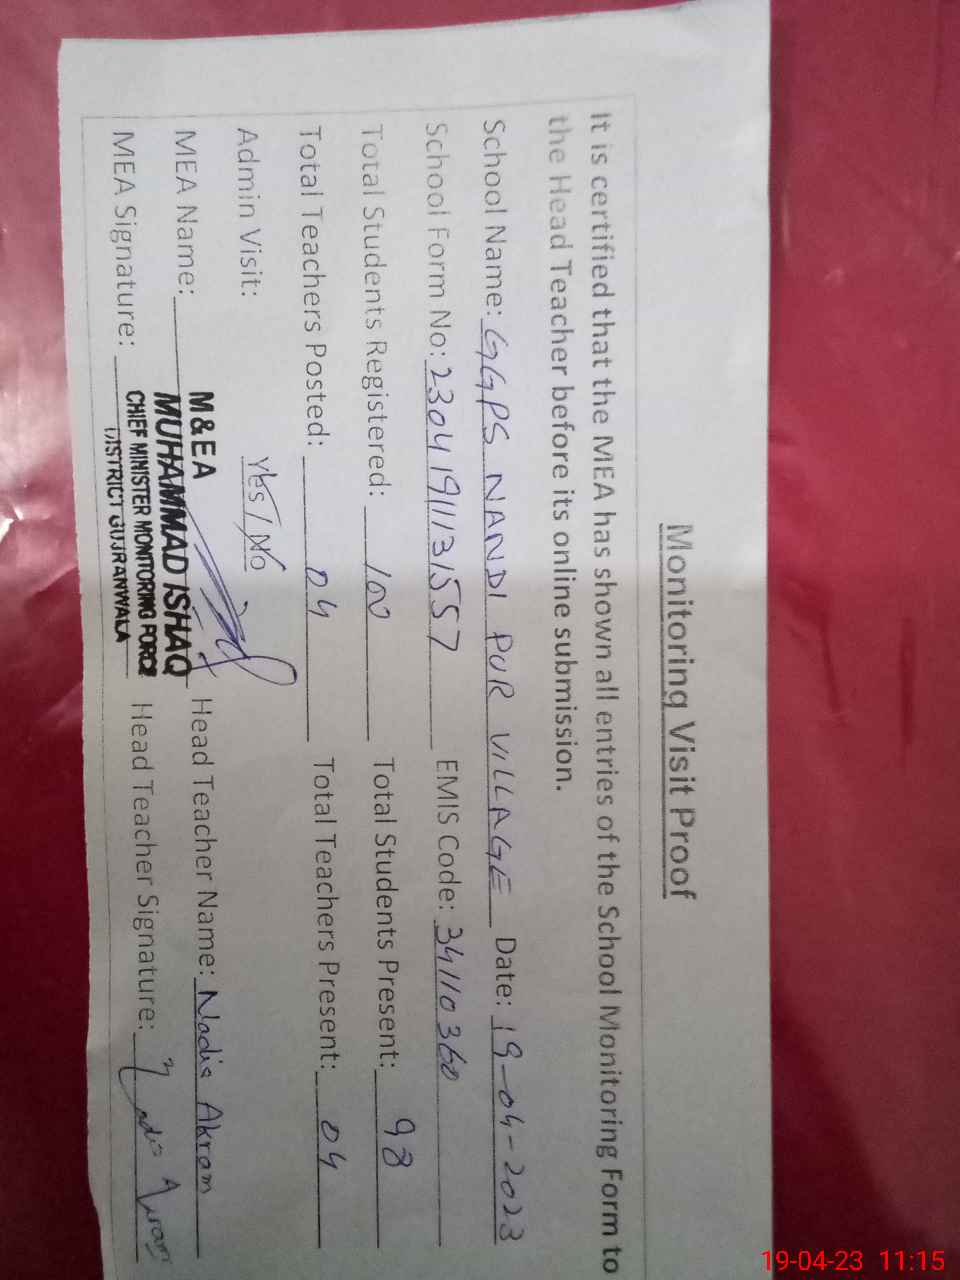 Monitoring Visit Proof
It is certified that the MEA has shown all entries of the School Monitoring Form to
the Head Teacher before its online submission.
School Name: GGPS NANDI PUR VILLAGE Date: 19-04-2023
School Form No: 23041911131557 EMIS Code: 34110360
Total Students Registered: 100 Total Students Present: 98
Total Teachers Posted: 04 Total Teachers Present: 04
Admin Visit: Yes / No
MEA Name: Head Teacher Name: Nadia Akram
MEA Signature: Head Teacher Signature: Nadia Akram
M&EA
MUHAMMAD ISHAQ
CHIEF MINISTER MONITORING FORCE
DISTRICT GUJRANWALA
19-04-23 11:15